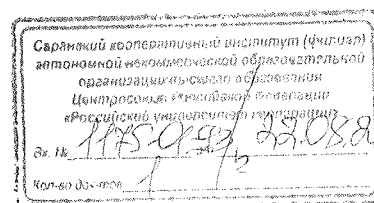 Саранский кооперативный институт (филиал)
автономной некоммерческой образовательной
организации высшего образования
Центросоюза Российской Федерации
«Российский университет кооперации»
Вх. № 1175-01 22.08.2
Кол-во док-тов 1